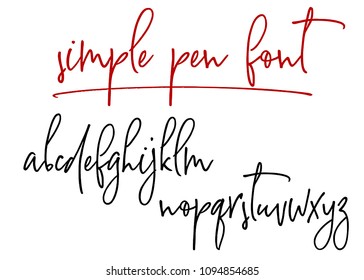 simple pen font
abcdefghijklm
nopqrstuvwxyz
shutterstock.com · 1094854685